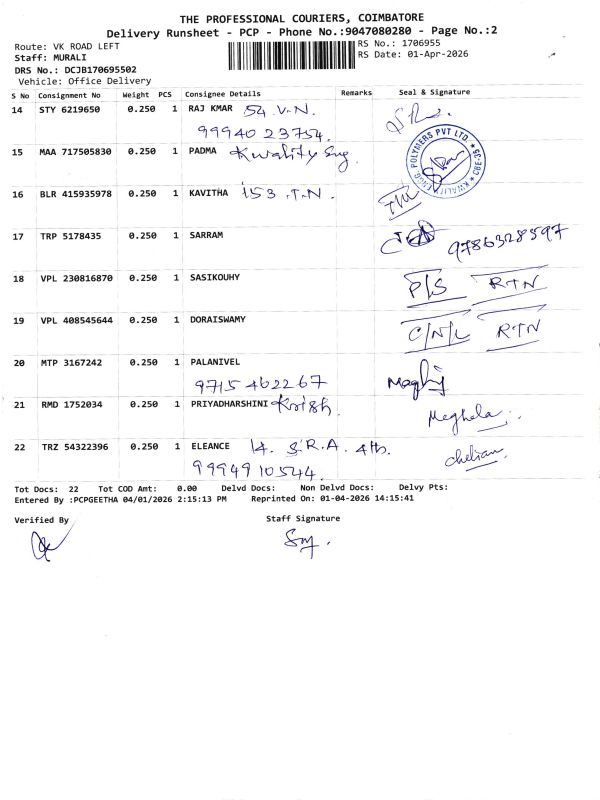 THE PROFESSIONAL COURIERS, COIMBATORE
Delivery Runsheet - PCP - Phone No.:9047080280 - Page No.:2
Route: VK ROAD LEFT RS No.: 1706955
Staff: MURALI RS Date: 01-Apr-2026
DRS No.: DCJB170695502
Vehicle: Office Delivery
S No Consignment No Weight PCS Consignee Details Remarks Seal & Signature
14 STY 6219650 0.250 1 RAJ KMAR 54 V.N.
99940 23754.
15 MAA 717505830 0.250 1 PADMA Kwality Eng. POLYMERS PVT LTD. KWALITY
16 BLR 415935978 0.250 1 KAVITHA 153 .T.N.
17 TRP 5178435 0.250 1 SARRAM 9786328597
18 VPL 230816870 0.250 1 SASIKOUHY P/S RTN
19 VPL 408545644 0.250 1 DORAISWAMY C/N/L RTN
20 MTP 3167242 0.250 1 PALANIVEL
9715 462267
21 RMD 1752034 0.250 1 PRIYADHARSHINI Krish. Meghala
22 TRZ 54322396 0.250 1 ELEANCE 14. S.R.A. 4th. chelian
99949 10544.
Tot Docs: 22 Tot COD Amt: 0.00 Delvd Docs: Non Delvd Docs: Delvy Pts:
Entered By :PCPGEETHA 04/01/2026 2:15:13 PM Reprinted On: 01-04-2026 14:15:41
Verified By Staff Signature